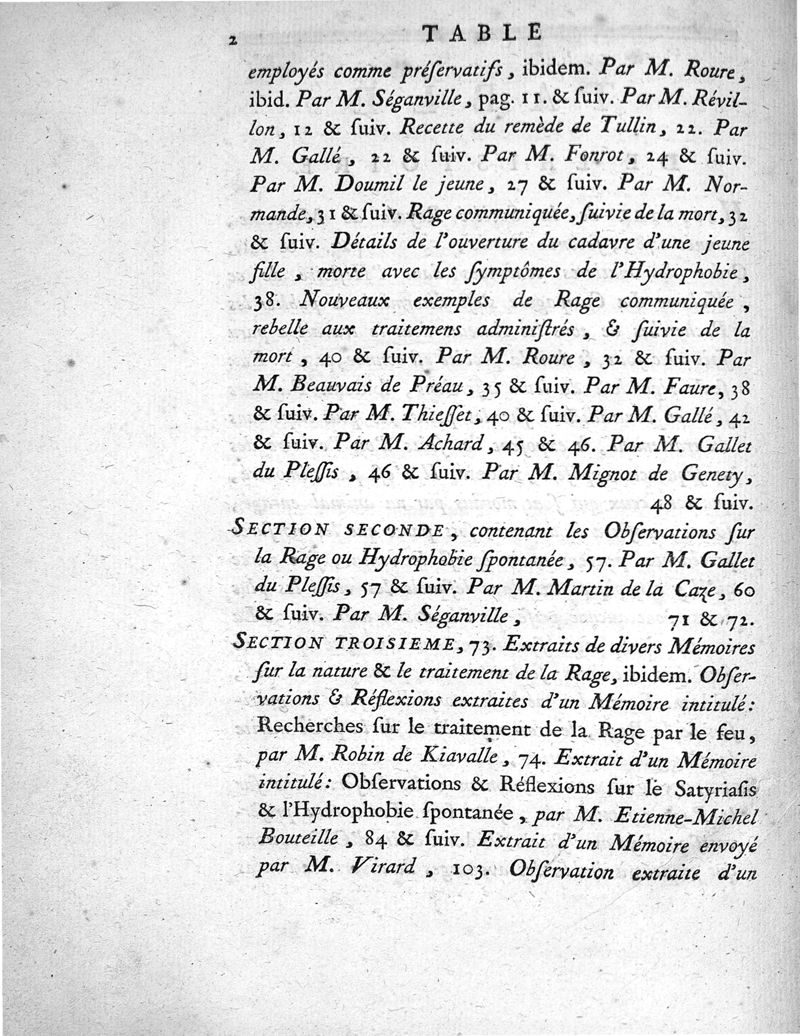 2 TABLE
employés comme préſervatifs, ibidem. Par M. Roure,
ibid. Par M. Séganville, pag. 11. & ſuiv. Par M. Révil-
lon, 12 & ſuiv. Recette du remède de Tullin, 22. Par
M. Gallé, 22 & ſuiv. Par M. Fonrot, 24 & ſuiv.
Par M. Doumil le jeune, 27 & ſuiv. Par M. Nor-
mande, 31 & ſuiv. Rage communiquée, ſuivie de la mort, 32
& ſuiv. Détails de l'ouverture du cadavre d'une jeune
fille, morte avec les ſymptômes de l'Hydrophobie,
38. Nouveaux exemples de Rage communiquée,
rebelle aux traitemens adminiſtrés, & ſuivie de la
mort, 40 & ſuiv. Par M. Roure, 32 & ſuiv. Par
M. Beauvais de Préau, 35 & ſuiv. Par M. Faure, 38
& ſuiv. Par M. Thieſſet, 40 & ſuiv. Par M. Gallé, 42
& ſuiv. Par M. Achard, 45 & 46. Par M. Gallet
du Pleſſis, 46 & ſuiv. Par M. Mignot de Genety,
48 & ſuiv.
SECTION SECONDE, contenant les Obſervations ſur
la Rage ou Hydrophobie ſpontanée, 57. Par M. Gallet
du Pleſſis, 57 & ſuiv. Par M. Martin de la Caze, 60
& ſuiv. Par M. Séganville, 71 & 72.
SECTION TROISIEME, 73. Extraits de divers Mémoires
ſur la nature & le traitement de la Rage, ibidem. Obſer-
vations & Réflexions extraites d'un Mémoire intitulé:
Recherches ſur le traitement de la Rage par le feu,
par M. Robin de Kiavalle, 74. Extrait d'un Mémoire
intitulé: Obſervations & Réflexions ſur le Satyriaſis
& l'Hydrophobie ſpontanée, par M. Etienne-Michel
Bouteille, 84 & ſuiv. Extrait d'un Mémoire envoyé
par M. Virard, 103. Obſervation extraite d'un